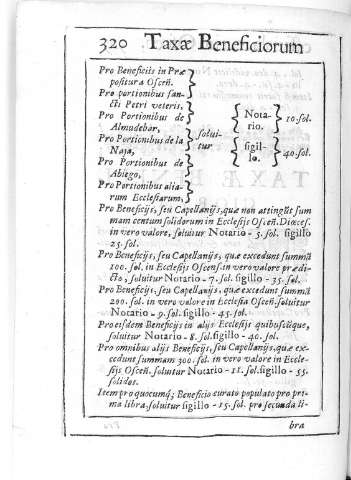 320 Taxæ Beneficiorum
Pro Beneficijs in Præ
positura Oscen̄.
Pro portionibus san-
cti Petri veteris,
Pro Portionibus de
Almudebar,
Pro Portionibus de la
Naja,
Pro Portionibus de
Abiego,
Pro Portionibus alia-
rum Ecclesiarum,
solui-
tur
Nota-
rio. 10. sol.
sigil-
lo. 40. sol.
Pro Beneficijs, seu Capellanijs, quæ non attingūt sum
mam centum solidorum in Ecclesijs Oscen̄. Diœces.
in vero valore, soluitur Notario - 5. sol. sigillo
25. sol.
Pro Beneficijs, seu Capellanijs, quæ excedunt summā
100. sol. in Ecclesijs Oscen̄. in vero valore prædi-
cto, soluitur Notario - 7. sol. sigillo - 35. sol.
Pro Beneficijs, seu Capellanijs, quæ excedunt summā
200. sol. in vero valore in Ecclesia Oscen̄. soluitur
Notario - 9. sol. sigillo - 45. sol.
Pro eisdem Beneficijs in alijs Ecclesijs quibuscūque,
soluitur Notario - 8. sol. sigillo - 40. sol.
Pro omnibus alijs Beneficijs, seu Capellanijs, quæ ex-
cedunt summam 300. sol. in vero valore in Eccle-
sijs Oscen̄. soluitur Notario - 11. sol. sigillo - 55.
solidos.
Item pro quocumq; Beneficio curato populato pro pri-
ma libra, soluitur sigillo - 15. sol. pro secunda li-
bra